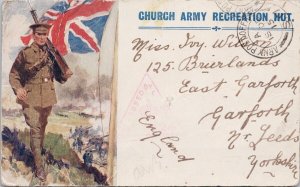 CHURCH ARMY RECREATION HUT.
Miss. Ivy
125. Brierlands
East Garforth
Garforth
Nr. Leeds
Yorkshire
England